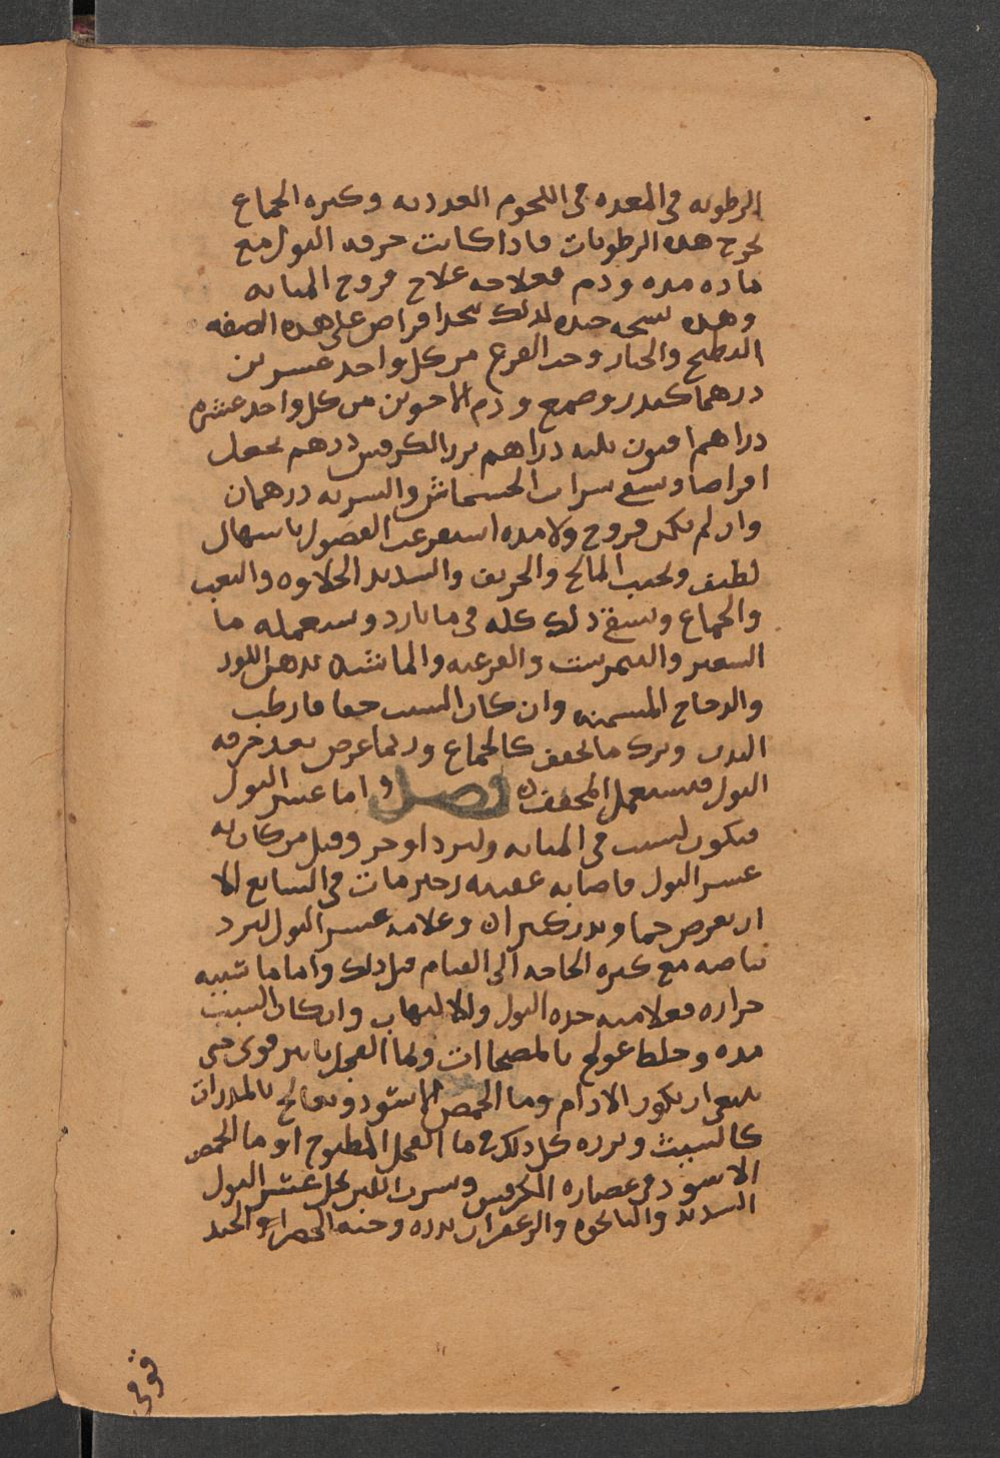 الرطوبه فى المعده فى اللحوم الغدديه وكثره الجماع
يخرج هده الرطوبات فاذا كانت حرقه البول مع
ماده مده ودم فعلاجه علاج قروح المثانه
وهده نسخه جيده لذلك يتخذ اقراص على هده الصفه
البطيخ والخيار وحب القرع من كل واحد عشرين
درهما كندر وصمغ ودم الاخوين من كل واحد عشره
دراهم افيون ثلثه دراهم بزر الكرفس درهم يعمل
اقراصا ويسقى شراب الخشخاش والشربه درهمان
وان لم يكن قروح ولا مده استفرغت الفضول باسهال
لطيف ويجتنب المالح والحريف والشديد الحلاوه والتعب
والجماع ويسقى ذلك كله فى ما بارد ويستعمله ما
الشعير والقرعيه والماشيه بدهن اللوز
والدجاج المسمنه وان كان السبب جفافا رطب
البدن وترك ما يجفف كالجماع وربما عرض بعد حرقه
البول فيستعمل المجفف فصل واما عسر البول
فيكون لسبب فى المثانه ولبرد او حر وقيل من كان به
عسر البول فاصابه عقيبه زحير مات فى السابع الا
ان يعرض حما ويدر كثيرا وعلامه عسر البول لبرد
بياضه مع كثره الحاجه الى القيام قبل ذلك واما ما سببه
حراره فعلامته حده البول والالتهاب وان كان السبب
مده وخلط عولج بالمصحاات وبما الفجل بايـر قوى حتى
وما الحمص الاسود ويعالج بالمدرات
كالشبث وبزره كل ذلك فى ما الفجل المطبوخ او ما الحمص
الاسود فى عصاره الكرفس وشرب اللبن يحل عسر البول
الشديد والنانخوه والزعفران بدره وحبه الخضرا والجند
قومى